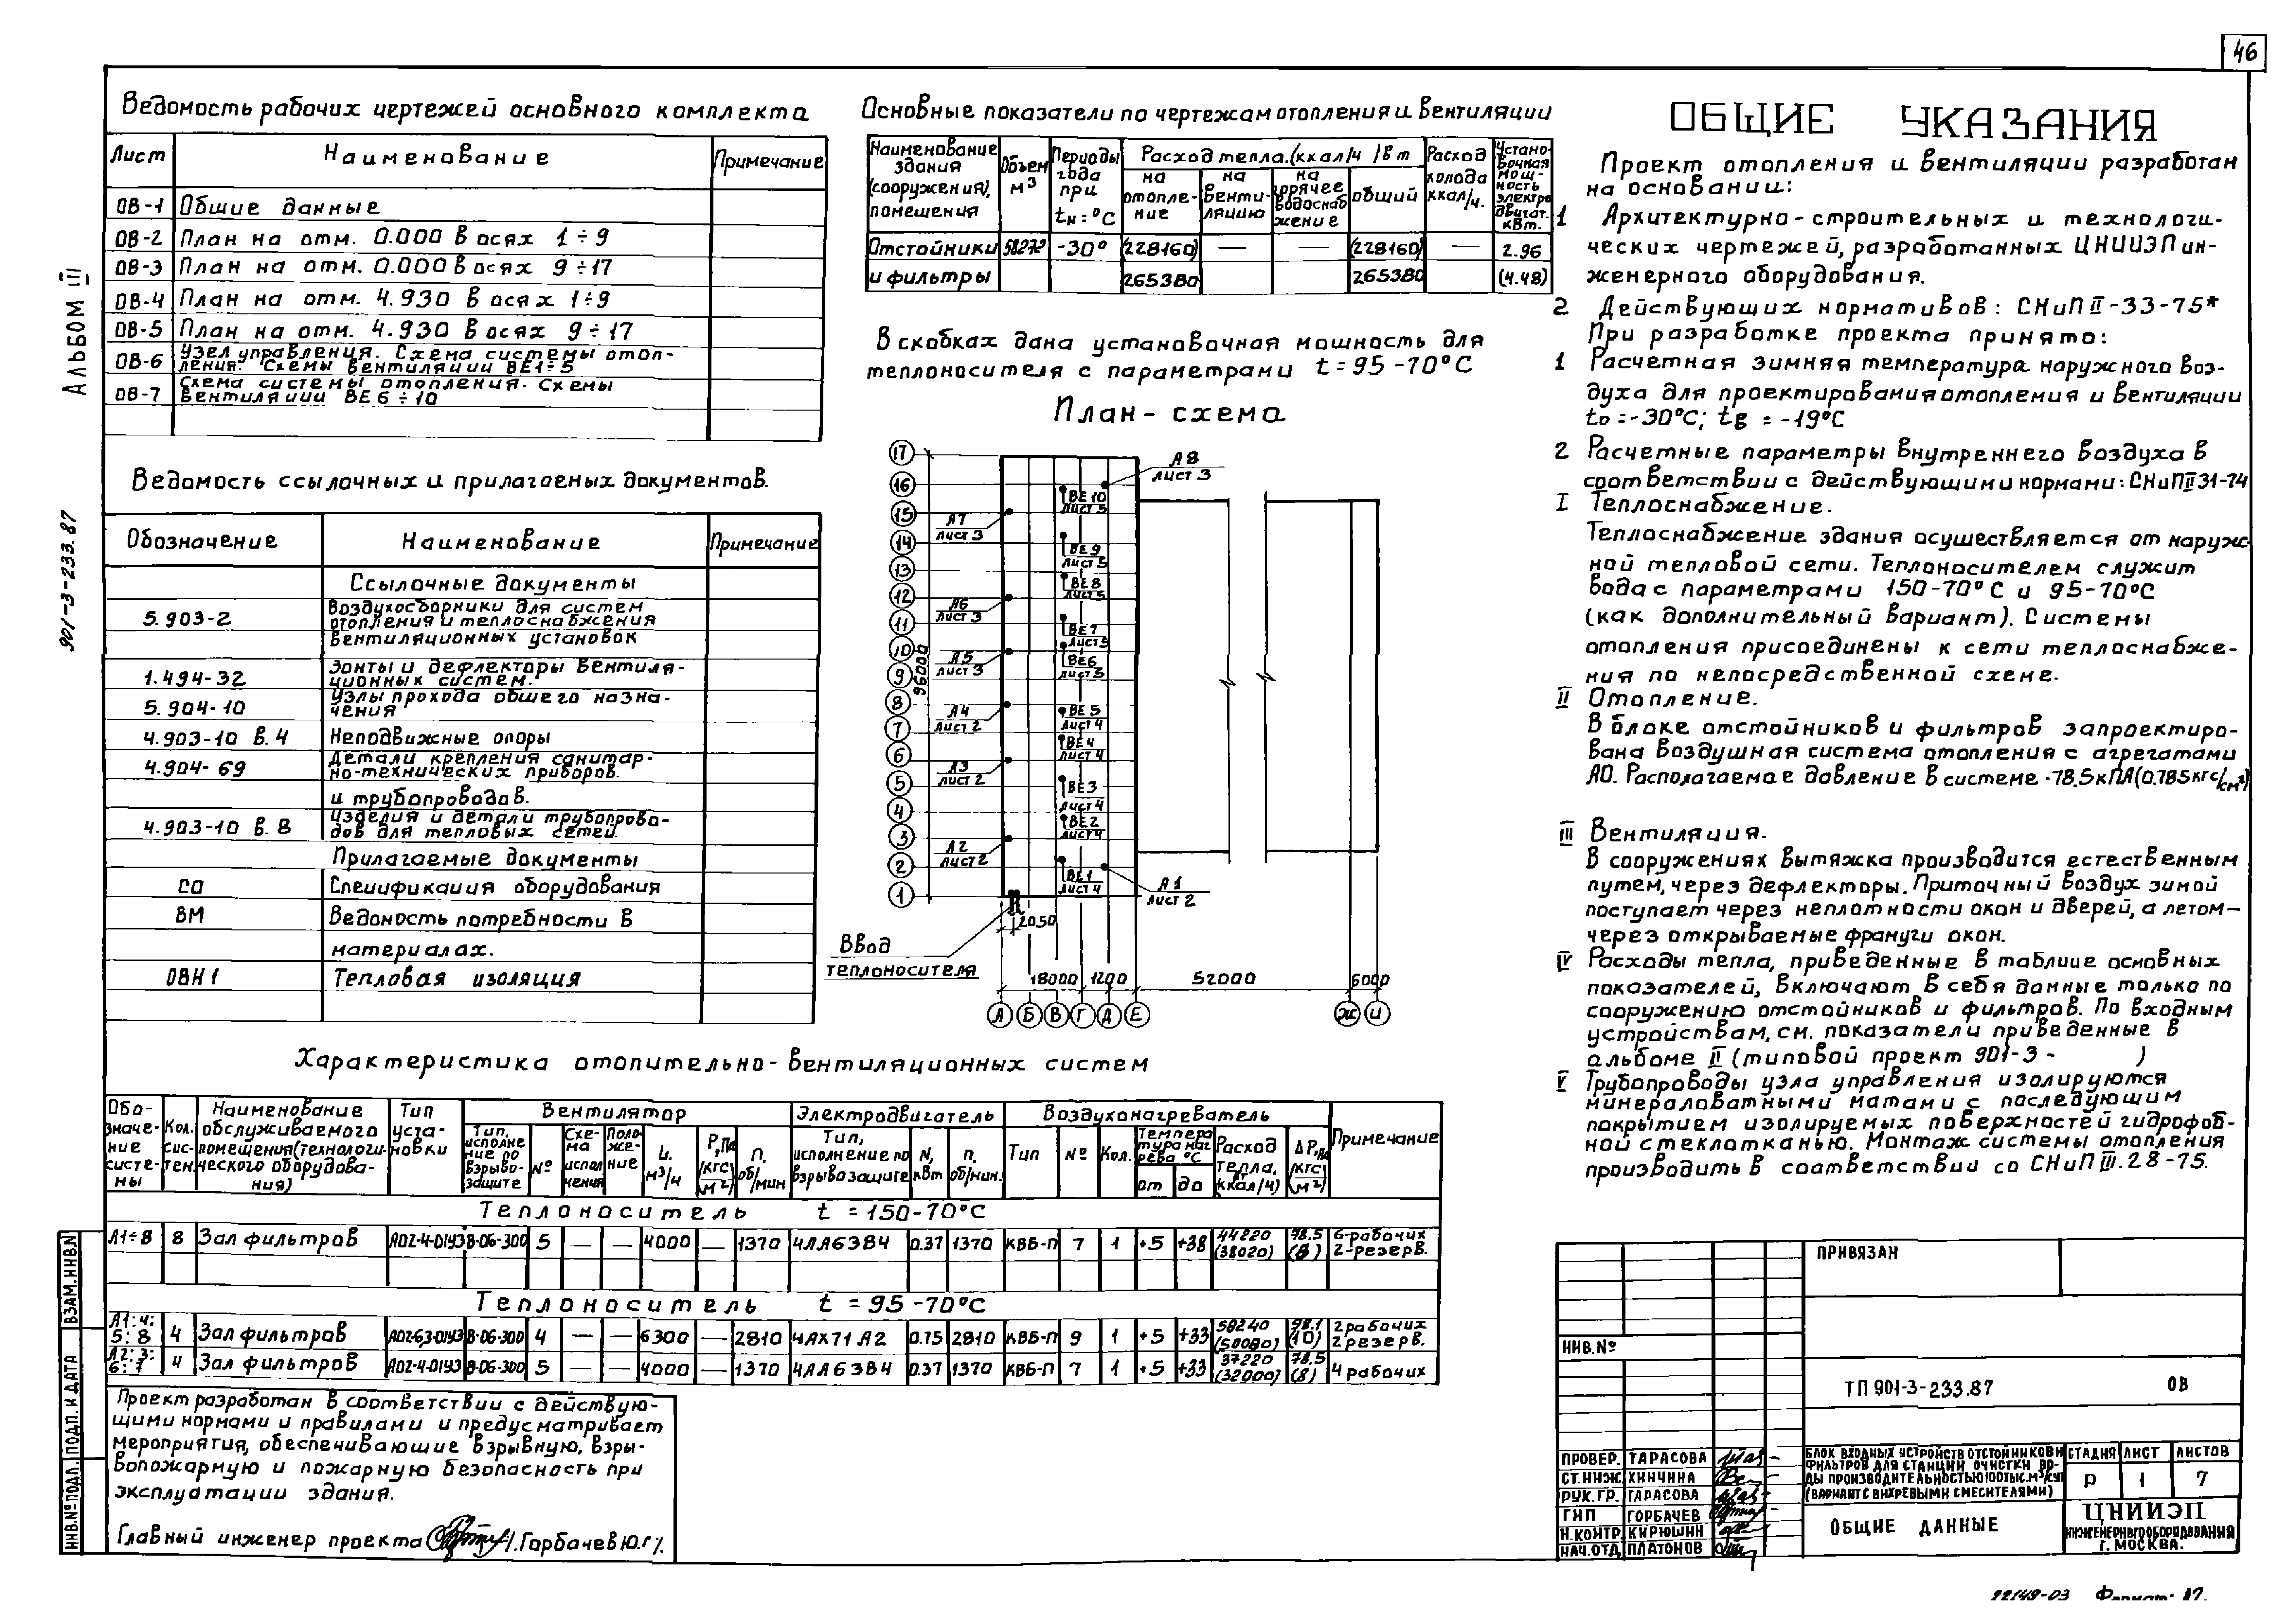 46
АЛЬБОМ III
901-3-233.87
Ведомость рабочих чертежей основного комплекта
Лист Наименование Примечание
ОВ-1 Общие данные
ОВ-2 План на отм. 0.000 в осях 1÷9
ОВ-3 План на отм. 0.000 в осях 9÷17
ОВ-4 План на отм. 4.930 в осях 1÷9
ОВ-5 План на отм. 4.930 в осях 9÷17
ОВ-6 Узел управления. Схема системы отоп-
ления. Схемы вентиляции ВЕ1÷5
ОВ-7 Схема системы отопления. Схемы
вентиляции ВЕ6÷10
Ведомость ссылочных и прилагаемых документов.
Обозначение Наименование Примечание
Ссылочные документы
5.903-2 Воздухосборники для систем
отопления и теплоснабжения
вентиляционных установок
1.494-32 Зонты и дефлекторы вентиля-
ционных систем.
5.904-10 Узлы прохода общего назна-
чения
4.903-10 в.4 Неподвижные опоры
4.904-69 Детали крепления санитар-
но-технических приборов.
и трубопроводов.
4.903-10 в.8 Изделия и детали трубопрово-
дов для тепловых сетей
Прилагаемые документы
СО Спецификация оборудования
ВМ Ведомость потребности в
материалах.
ОВН1 Тепловая изоляция
Основные показатели по чертежам отопления и вентиляции
Наименование здания (сооружения), помещения
Объем м³
Периоды года при tн:°С
Расход тепла.(ккал/ч )Вт
на отопле-ние
на венти-ляцию
на горячее водоснаб жение
общий
Расход холода ккал/ч.
Устано-вочная мощ-ность электро двигат. кВт.
Отстойники 58272 -30° (228160) — — (228160) — 2.96
и фильтры 265380 265380 (4.48)
В скобках дана установочная мощность для
теплоносителя с параметрами t=95-70°С
План-схема
17
16
15
14
13
12
11
10
9
8
7
6
5
4
3
2
1
96000
А8
лист 3
А7
лист 3
А6
лист 3
А5
лист 3
А4
лист 2
А3
лист 2
А2
лист 2
А1
лист 2
ВЕ10
лист 5
ВЕ9
лист 5
ВЕ8
лист 5
ВЕ7
лист 5
ВЕ6
лист 5
ВЕ5
лист 4
ВЕ4
лист 4
ВЕ3
лист 4
ВЕ2
лист 4
ВЕ1
лист 4
2050
Ввод
теплоносителя
18000 1200 52000 6000
А Б В Г Д Е Ж И
Характеристика отопительно-вентиляционных систем
Обо-значе-ние систе-мы
Кол. сис-тем.
Наименование обслуживаемого помещения(технологи-ческого оборудова-ния)
Тип уста-новки
Вентилятор
Тип, исполне ние по взрыво-защите
№
Схе-ма испол нения
Поло-же-ние
L, м³/ч
Р,Па (кгс/м²)
п, об/мин
Электродвигатель
Тип, исполнение по взрывозащите
N, кВт
п, об/мин.
Воздухонагреватель
Тип
№
Кол.
Темпера тура наг рева °С
от
до
Расход тепла, Вт (ккал/ч)
ΔР,Па (кгс/м²)
Примечание
Теплоноситель t=150-70°С
А1÷8 8 Зал фильтров АО2-4-01У3 В-06-300 5 — — 4000 — 1370 4АА63В4 0.37 1370 КВБ-П 7 1 +5 +38 44220 (38020) 78.5 (8) 6-рабочих 2-резерв.
Теплоноситель t=95-70°С
А1;4; 5;8 4 Зал фильтров АО2-6,3-01У3 В-06-300 4 — — 6300 — 2810 4АХ71А2 0.75 2810 КВБ-П 9 1 +5 +33 58240 (50080) 98.1 (10) 2рабочих 2резерв.
А2;3; 6;7 4 Зал фильтров АО2-4-01У3 В-06-300 5 — — 4000 — 1370 4АА63В4 0.37 1370 КВБ-П 7 1 +5 +33 37220 (32000) 78.5 (8) 4 рабочих
Проект разработан в соответствии с действую-
щими нормами и правилами и предусматривает
мероприятия, обеспечивающие взрывную, взры-
вопожарную и пожарную безопасность при
эксплуатации здания.
Главный инженер проекта /.Горбачев Ю.Г/.
ОБЩИЕ УКАЗАНИЯ
Проект отопления и вентиляции разработан
на основании:
1 Архитектурно-строительных и технологи-
ческих чертежей, разработанных ЦНИИЭП ин-
женерного оборудования.
2 Действующих нормативов: СНиП II-33-75*
При разработке проекта принято:
1 Расчетная зимняя температура наружного воз-
духа для проектирования отопления и вентиляции
tо=-30°С; tв=-19°С
2 Расчетные параметры внутреннего воздуха в
соответствии с действующими нормами: СНиП II 31-74
I Теплоснабжение.
Теплоснабжение здания осуществляется от наруж-
ной тепловой сети. Теплоносителем служит
вода с параметрами 150-70°С и 95-70°С
(как дополнительный вариант). Системы
отопления присоединены к сети теплоснабже-
ния по непосредственной схеме.
II Отопление.
В блоке отстойников и фильтров запроектиро-
вана воздушная система отопления с агрегатами
АО. Располагаемое давление в системе -78.5кПА(0.785кгс/см²)
III Вентиляция.
В сооружениях вытяжка производится естественным
путем, через дефлекторы. Приточный воздух зимой
поступает через неплотности окон и дверей, а летом—
через открываемые фрамуги окон.
IV Расходы тепла, приведенные в таблице основных
показателей, включают в себя данные только по
сооружению отстойников и фильтров. По входным
устройствам, см. показатели приведенные в
альбоме II (типовой проект 901-3- )
V Трубопроводы узла управления изолируются
минераловатными матами с последующим
покрытием изолируемых поверхностей гидрофоб-
ной стеклотканью. Монтаж системы отопления
производить в соответствии со СНиП III.28-75.
ПРИВЯЗАН
ИНВ.№
ТП 901-3-233.87 ОВ
ПРОВЕР. ТАРАСОВА
СТ.ИНЖ. ХИНЧИНА
РУК.ГР. ТАРАСОВА
ГИП ГОРБАЧЕВ
Н.КОНТР. КИРЮШИН
НАЧ.ОТД. ПЛАТОНОВ
БЛОК ВХОДНЫХ УСТРОЙСТВ ОТСТОЙНИКОВ И
ФИЛЬТРОВ ДЛЯ СТАНЦИИ ОЧИСТКИ ВО-
ДЫ ПРОИЗВОДИТЕЛЬНОСТЬЮ 100 ТЫС.М³/СУТ
(ВАРИАНТ С ВИХРЕВЫМИ СМЕСИТЕЛЯМИ)
СТАДИЯ ЛИСТ ЛИСТОВ
Р 1 7
ОБЩИЕ ДАННЫЕ
ЦНИИЭП
ИНЖЕНЕРНОГО ОБОРУДОВАНИЯ
Г. МОСКВА.
ВЗАМ.ИНВ.№
ПОДП. И ДАТА
ИНВ.№ ПОДЛ.
22149-03 Формат: 12.